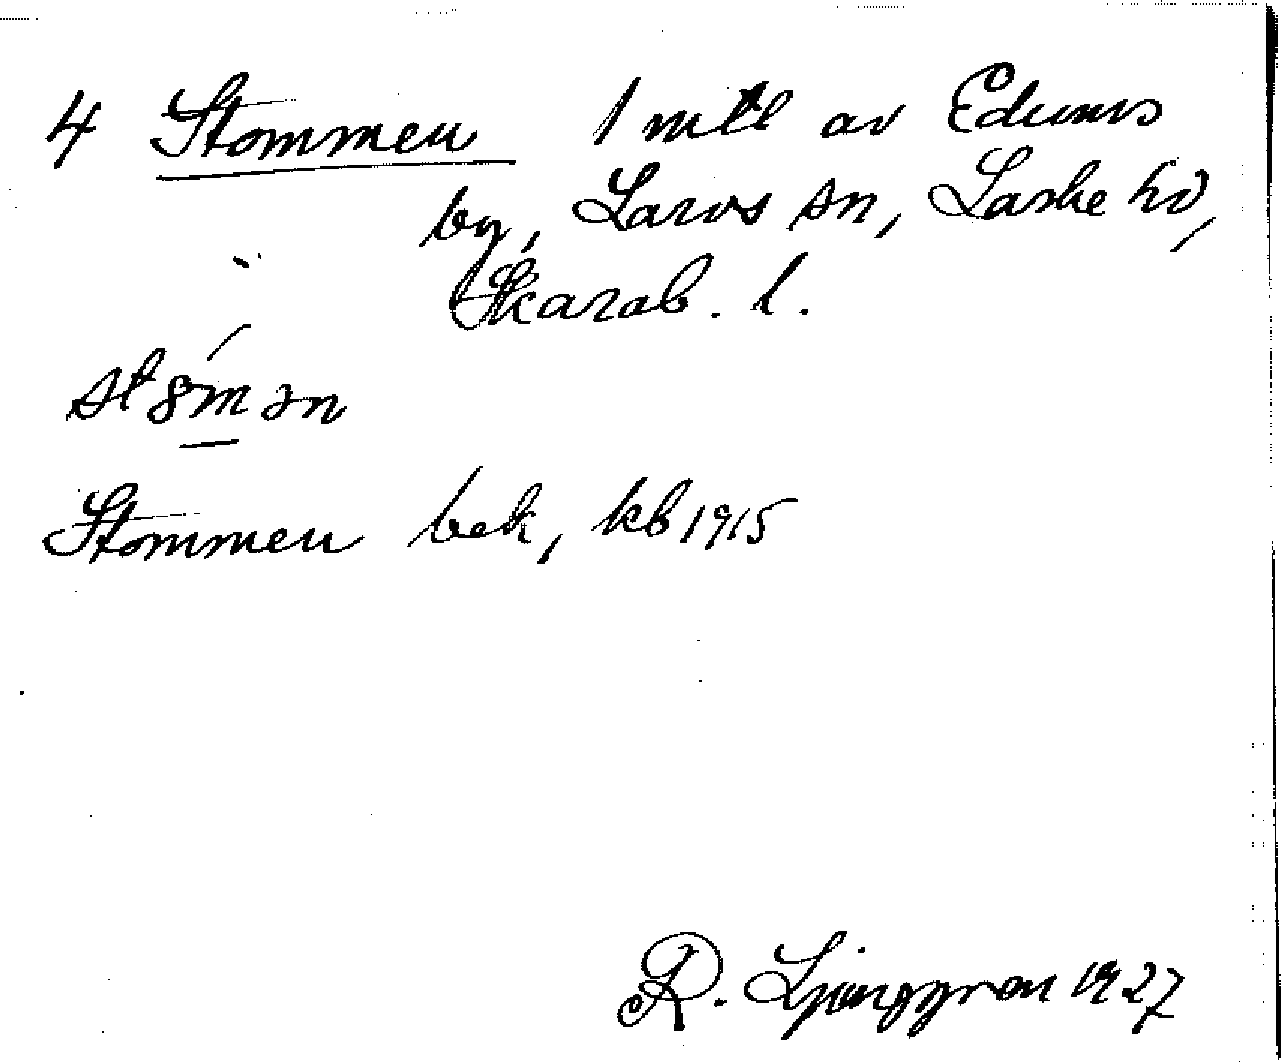 4 Stommen 1 mtl av Edums
by, Larvs sn, Laske hd,
Skarab. l.
stɷ́mən
Stommen bek, kb 1915
R. Ljunggren 1927